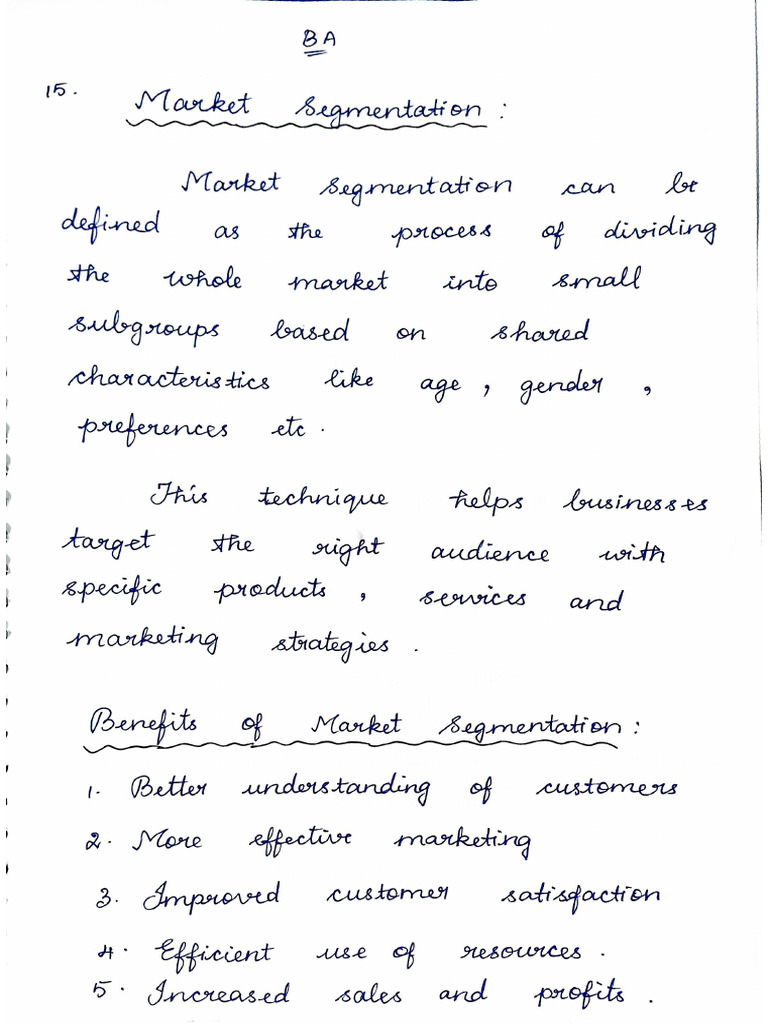 BA
15. Market Segmentation :
Market segmentation can be
defined as the process of dividing
the whole market into small
subgroups based on shared
characteristics like age , gender ,
preferences etc .
This technique helps businesses
target the right audience with
specific products , services and
marketing strategies .
Benefits of Market Segmentation :
1. Better understanding of customers
2. More effective marketing
3. Improved customer satisfaction
4. Efficient use of resources .
5. Increased sales and profits .